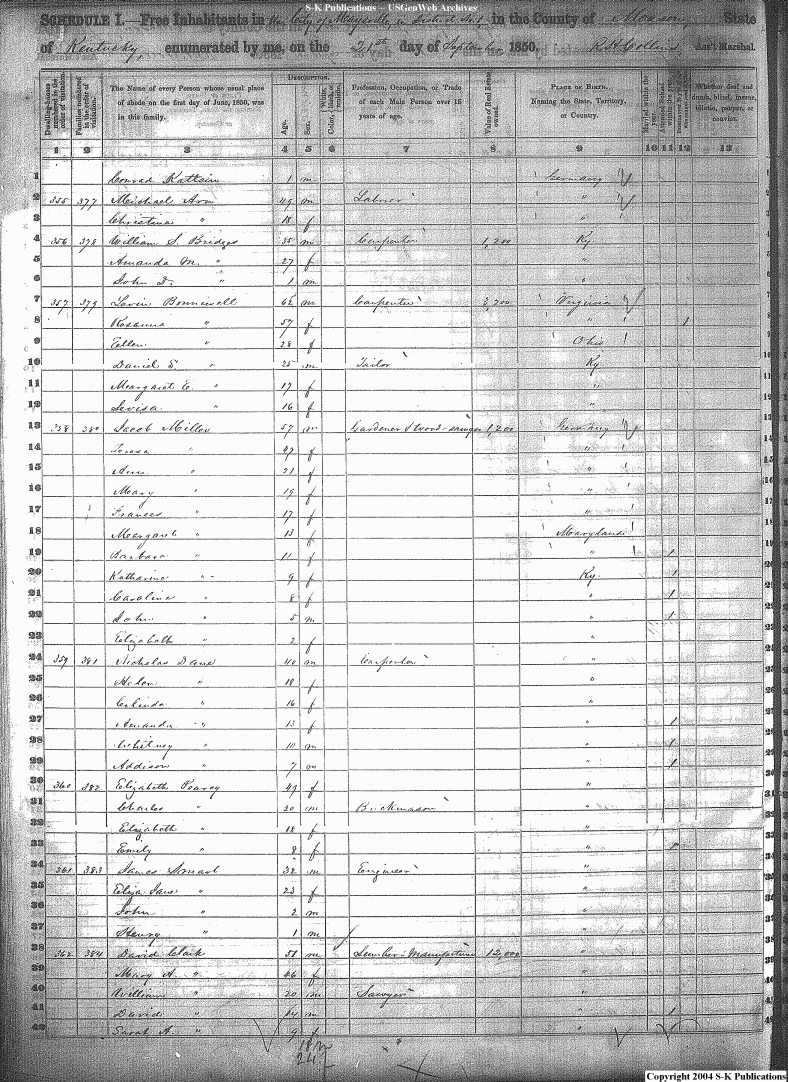 S-K Publications – USGenWeb Archives
SCHEDULE I.—Free Inhabitants in the City of Maysville in District No. 1, in the County of Mason State
of Kentucky, enumerated by me, on the 21st day of September 1850. R H Collins Ass't Marshal.
DESCRIPTION.
Dwelling-houses numbered in the order of visitation.
Families numbered in the order of visitation.
The Name of every Person whose usual place of abode on the first day of June, 1850, was in this family.
Age.
Sex.
Profession, Occupation, or Trade of each Male Person over 15 years of age.
Value of Real Estate owned.
PLACE OF BIRTH. Naming the State, Territory, or Country.
Married within the year.
Whether deaf and dumb, blind, insane, idiotic, pauper, or convict.
1 2 3 4 5 6 7 8 9 10 11 12 13
1 Conrad 1 m Germany
2 355 377 Michael 49 m "
3 Christina " 18 f "
4 356 378 William S. Bridges 35 m Carpenter 1,200 Ky.
5 Amanda M. " 27 f "
6 John D. " 1 m "
7 357 379 Bonniwell 62 m Carpenter Virginia
8 Rosanna " 57 f " 1
9 Ellen " 28 f Ohio
10 Daniel S. " 25 m Tailor Ky.
11 Margaret E. " 17 f "
12 Levisa " 16 f "
13 358 380 Jacob Miller 57 m Gardener & wood-sawyer 1,200 Germany
14 Teresa " 47 f "
15 Ann " 21 f "
16 Mary " 19 f "
17 Frances " 17 f "
18 Margaret " 13 f Maryland
19 Barbara " 11 f " 1
20 Katharine " 9 f Ky. 1
21 Caroline " 8 f " 1
22 John " 5 m " 1
23 Elizabeth " 2 f "
24 359 381 Nicholas Dane 40 m Carpenter "
25 Helen " 18 f "
26 " 16 f "
27 Amanda " 13 f " 1
28 Whitney " 10 m " 1
29 Addison " 7 m " 1
30 360 382 Elizabeth Pearcy 49 f "
31 Charles " 20 m Brickmason "
32 Elizabeth " 18 f "
33 Emily " 8 f " 1
34 361 383 James Smart 32 m Engineer "
35 Eliza Jane " 23 f "
36 John " 2 m "
37 Henry " 1 m "
38 362 384 David Clark 51 m Lumber-Manufacturer 12,000 "
39 Mary A. " 46 f "
40 William " 20 m Sawyer "
41 David " 14 m " 1
42 Sarah A. " 9 f " 1
18 m
24 f
Copyright 2004 S-K Publications